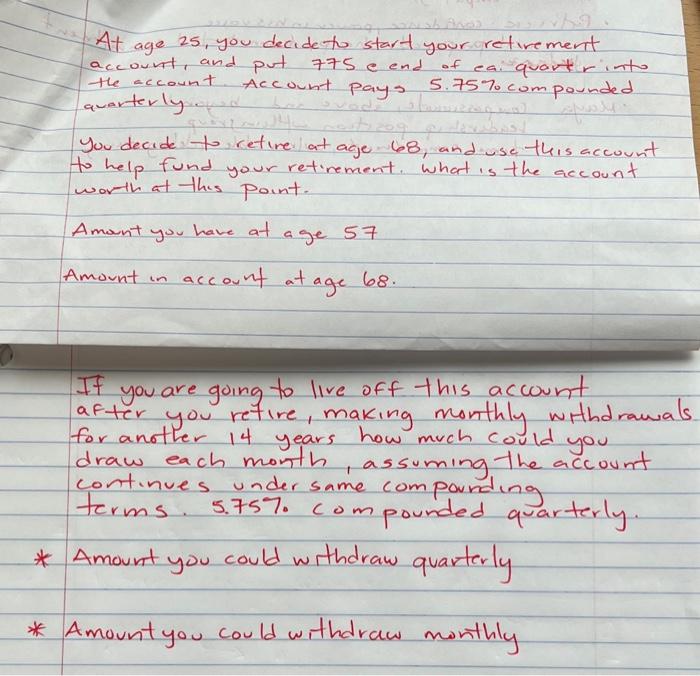 At age 25, you decide to start your retirement
account, and put 775 @ end of ea. quarter into
the account. Account pays 5.75% compounded
quarterly.
you decide to retire at age 68, and use this account
to help fund your retirement. What is the account
worth at this point.
Amount you have at age 57
Amount in account at age 68.
If you are going to live off this account
after you retire, making monthly withdrawals
for another 14 years how much could you
draw each month, assuming the account
continues under same compounding
terms. 5.75% compounded quarterly.
* Amount you could withdraw quarterly
* Amount you could withdraw monthly